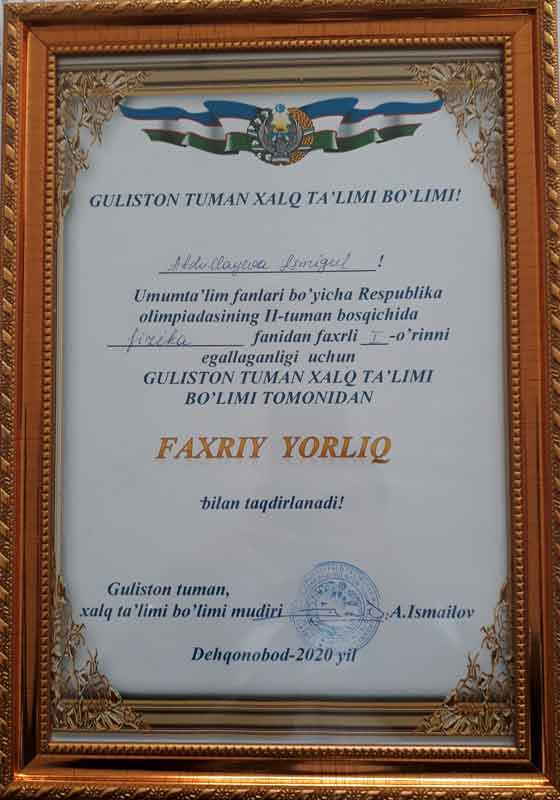 GULISTON TUMAN XALQ TA'LIMI BO'LIMI!
Abdullayeva !
Umumta'lim fanlari bo'yicha Respublika
olimpiadasining II-tuman bosqichida
fizika fanidan faxrli I -o'rinni
egallaganligi uchun
GULISTON TUMAN XALQ TA'LIMI
BO'LIMI TOMONIDAN
FAXRIY YORLIQ
bilan taqdirlanadi!
Guliston tuman,
xalq ta'limi bo'limi mudiri A.Ismailov
Dehqonobod-2020 yil